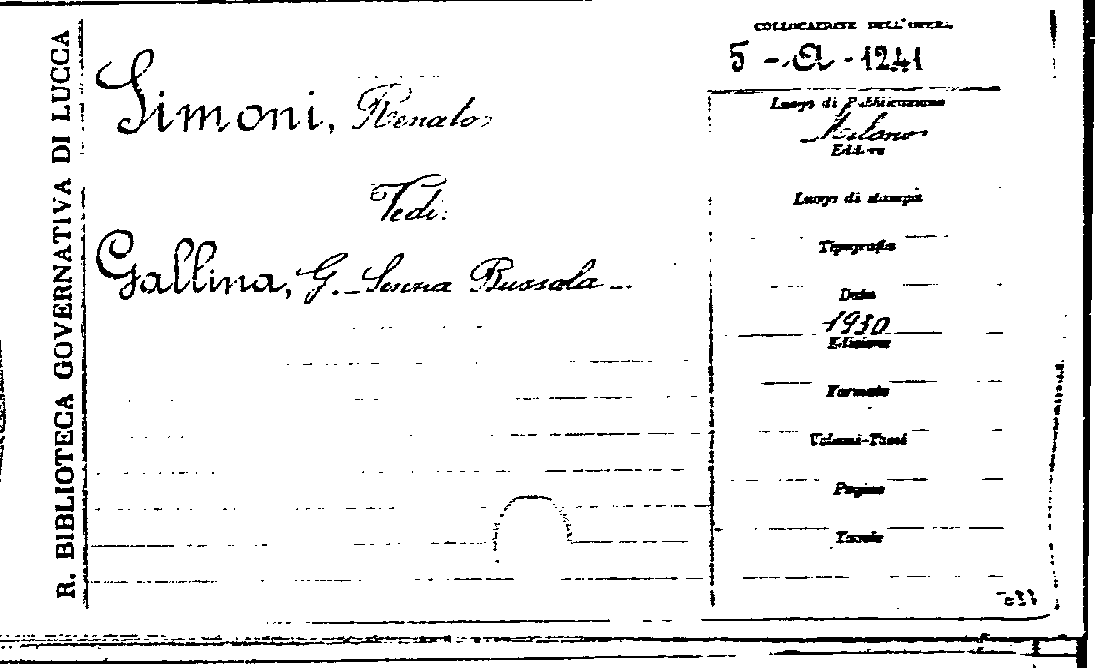 R. BIBLIOTECA GOVERNATIVA DI LUCCA
Simoni, Renato
Vedi:
Gallina, G. Serena Bussola
COLLOCAZIONE DELL'OPERA
5 - A - 1241
Luogo di Pubblicazione
Milano
Editore
Luogo di stampa
Tipografia
Data
1930
Edizione
Formato
Volumi-Tomi
Pagine
Tavole